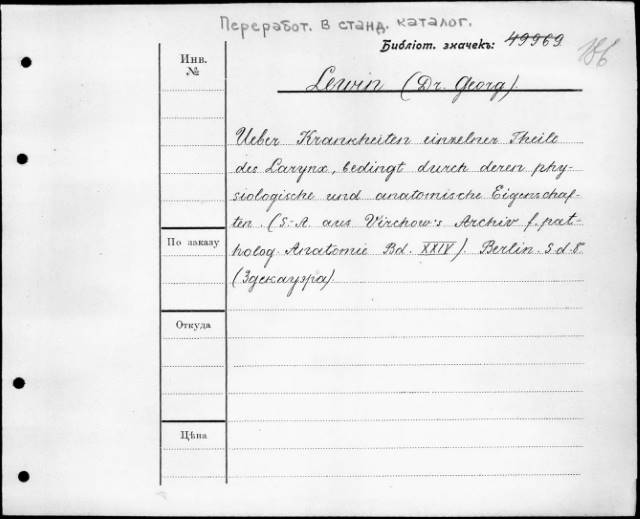 Переработ. в станд. каталог.
Библіот. значекъ: 49969
186
Инв.
№
Lewin (Dr. Georg).
Ueber Krankheiten einzelner Theile
des Larynx, bedingt durch deren phy-
siologische und anatomische Eigenschaf-
ten. (S.-A. aus Virchow's Archiv f. pat-
holog. Anatomie Bd. XXIV). Berlin. S. d. 8°
(Здекауэра)
По заказу
Откуда
Цѣна